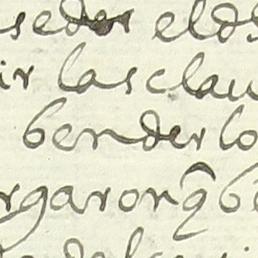 seder elds
ir las clau
bender lo
rgaron q̃ be